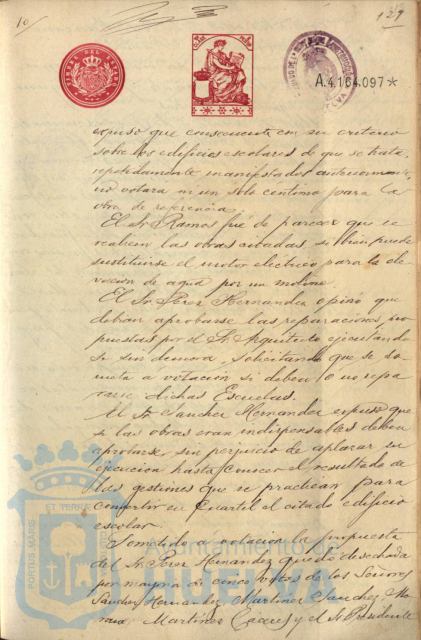 10
129
TIMBRE DEL ESTADO
A.4.164.097*
expuso que consecuente con su criterio
sobre los edificios escolares de que se trata,
repetidamente manifestados anteriormente,
no votará ni un solo céntimo para la
obra de referencia.
El Sr. Ramos fué de parecer que se
realicen las obras citadas, si bien puede
sustituirse el motor eléctrico para la ele-
vación de agua por un molino.
El Sr. Perez Hernandez opinó que
debían aprobarse las reparaciones pro
puestas por el Sr. Arquitecto ejecutando
se sin demora, solicitando que se so-
meta á votación si deben ó no repa
rarse dichas Escuelas.
El Sr. Sanchez Hernandez expuso que
si las obras eran indispensables deben
aprobarse, sin perjuicio de aplazar su
ejecución hasta conocer el resultado de
las gestiones que se practican para
convertir en Cuartel el citado edificio
escolar.
Sometido á votación la propuesta
del Sr. Perez Hernandez quedó desechada
por mayoría de cinco votos de los Señores
Sanchez Hernandez, Martinez Sanchez, Mo-
Martinez y el Sr. Presidente
Ayuntamiento de
HUELVA
PORTUS MARIS
ET TERRAE
CUSTODIA